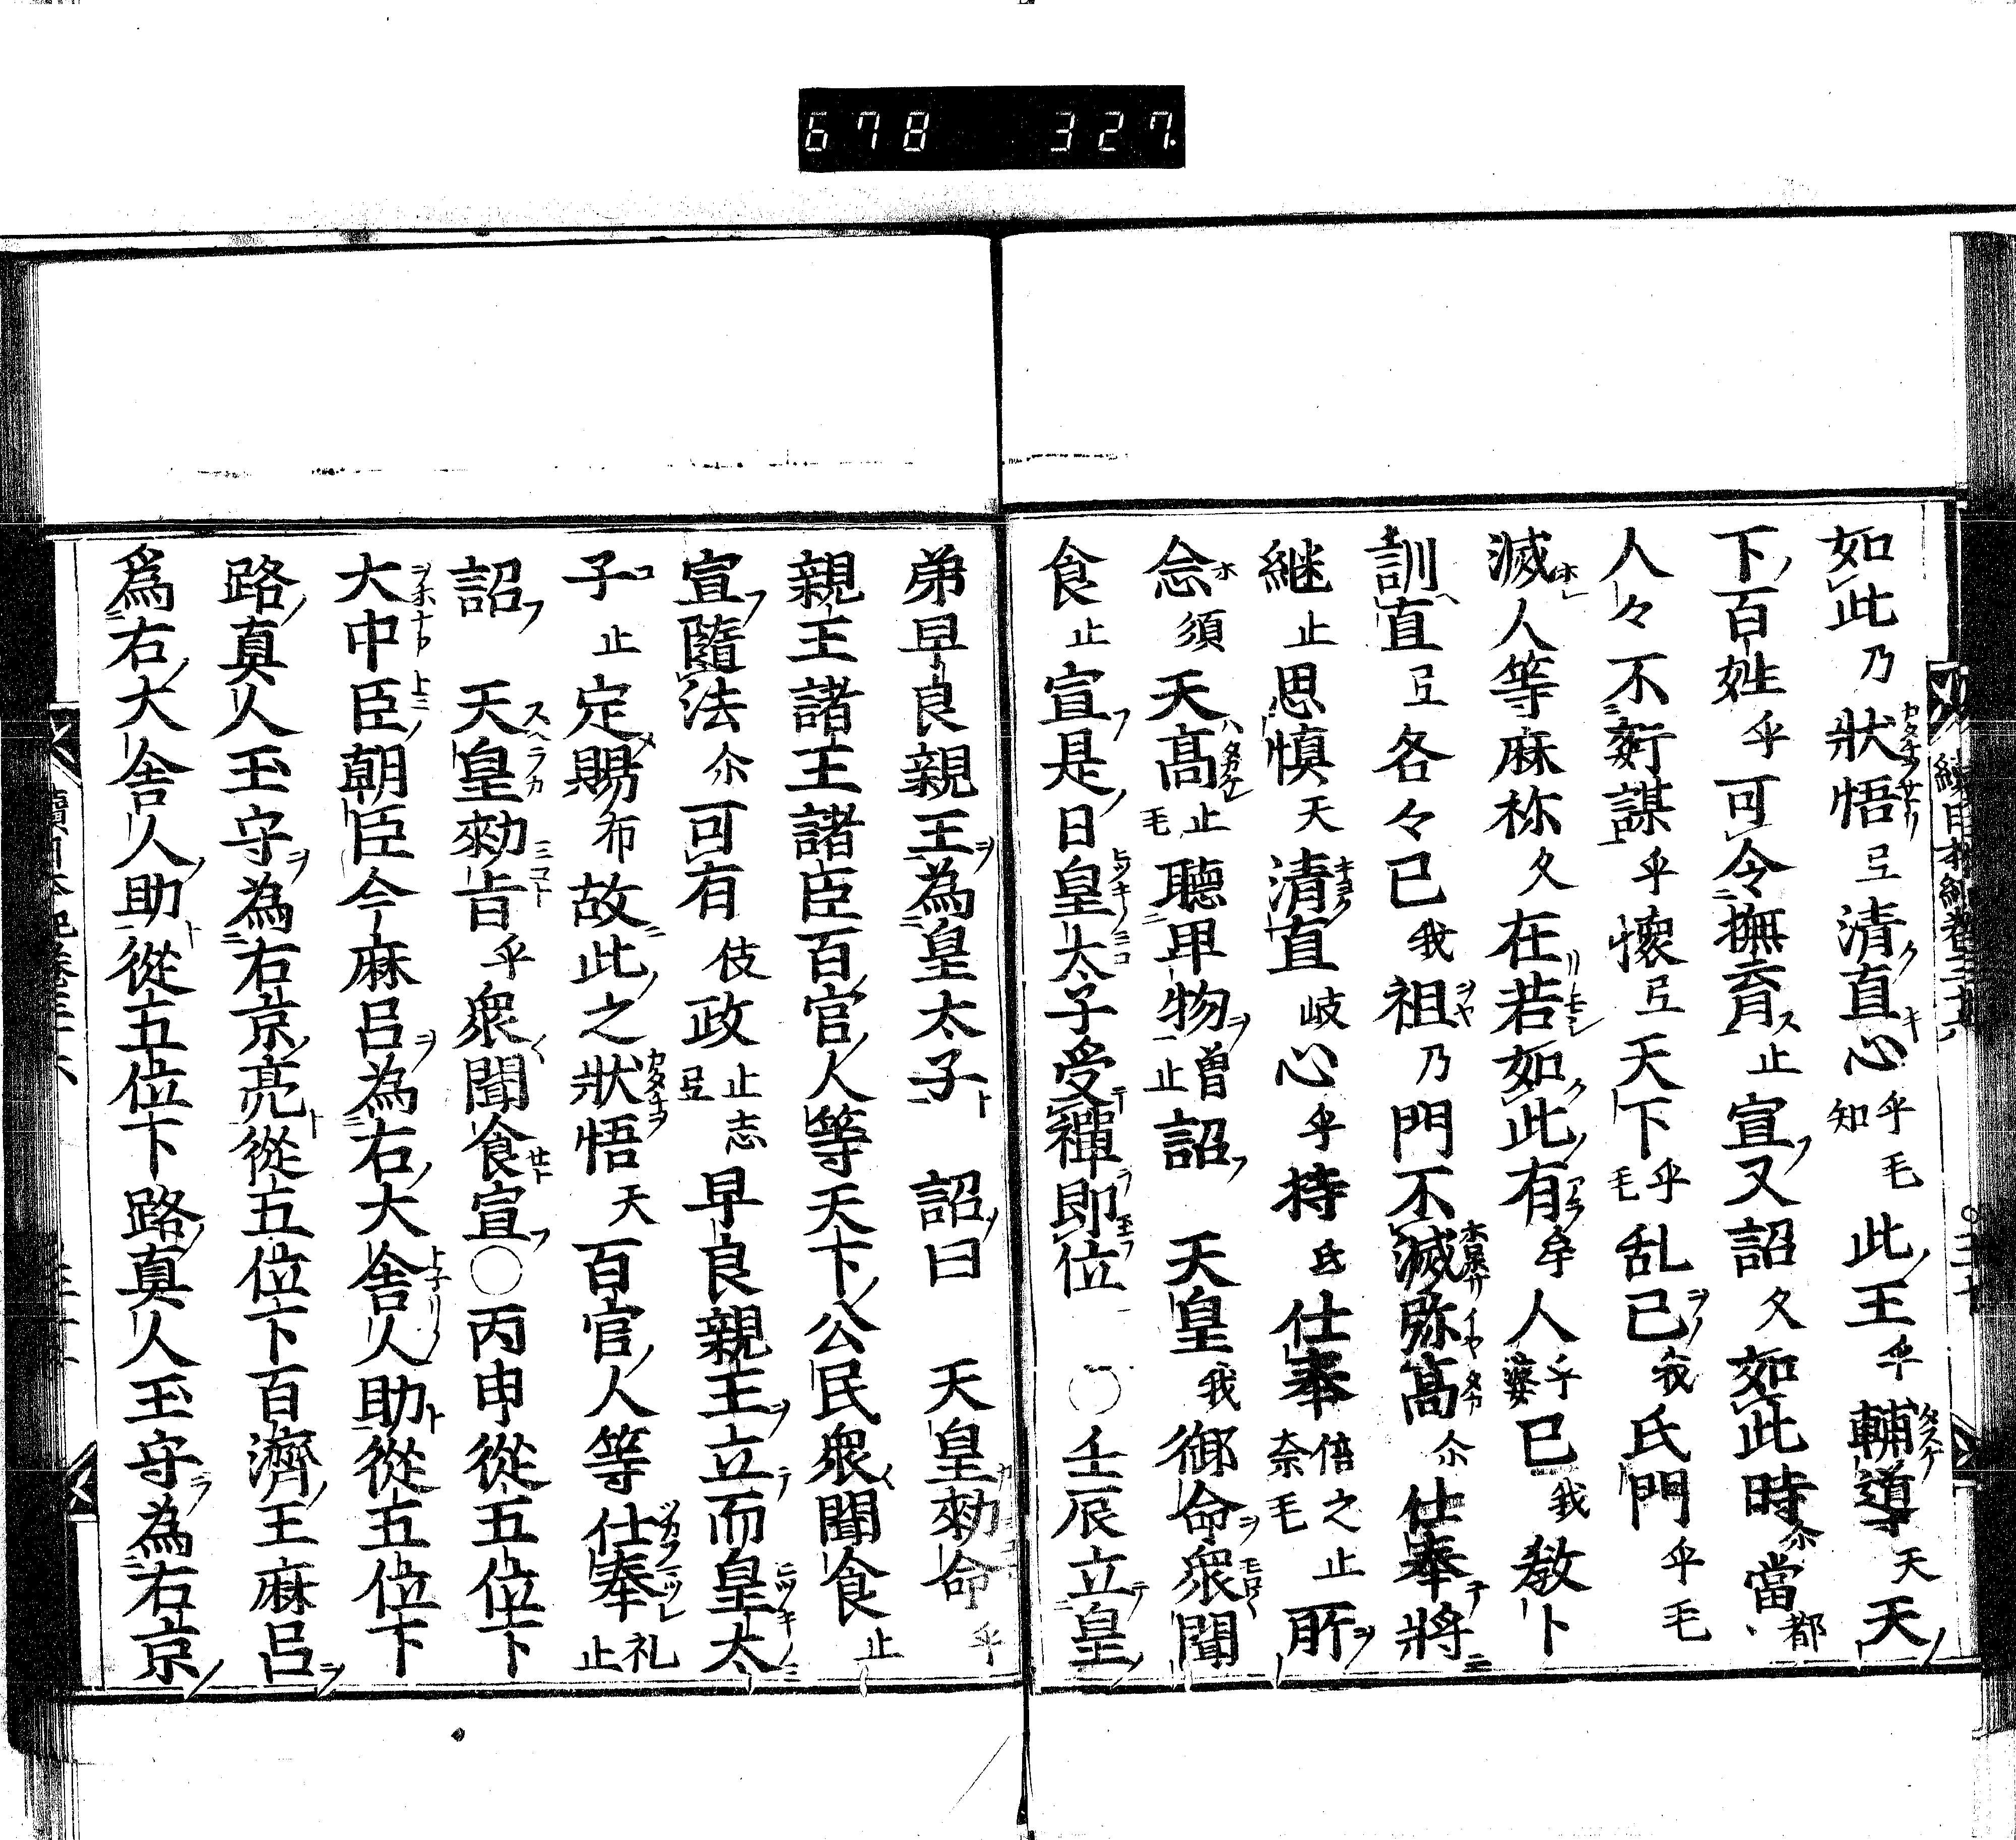 678 327
如此乃狀悟弖清直心乎毛知此王乎輔導天天
下百姓乎可令撫育止宣又詔久如此時尒當都
人々不㚥謀乎懷弖天下乎毛乱己我氏門乎毛
滅人等麻祢久在若如此有牟人乎婆己我教卜
訓直弖各々己我祖乃門不滅弥高尒仕奉將
継止思慎天清直岐心乎持弖仕奉倍之止奈毛所
念須天高止毛聽卑物曽止詔天皇我御命衆聞
食止宣是日皇太子受禪即位○壬辰立皇
弟早良親王為皇太子詔曰天皇勅命乎
親王諸王諸臣百官人等天下公民衆聞食止
宣隨法尒可有伎政止志弖早良親王立而皇太
子止定賜布故此之狀悟天百官人等仕奉礼止
詔天皇勅旨乎衆聞食宣○丙申從五位下
大中臣朝臣今麻呂為右大舍人助從五位下
路真人玉守為右京亮從五位下百濟王麻呂
為右大舍人助從五位下路真人玉守為右京